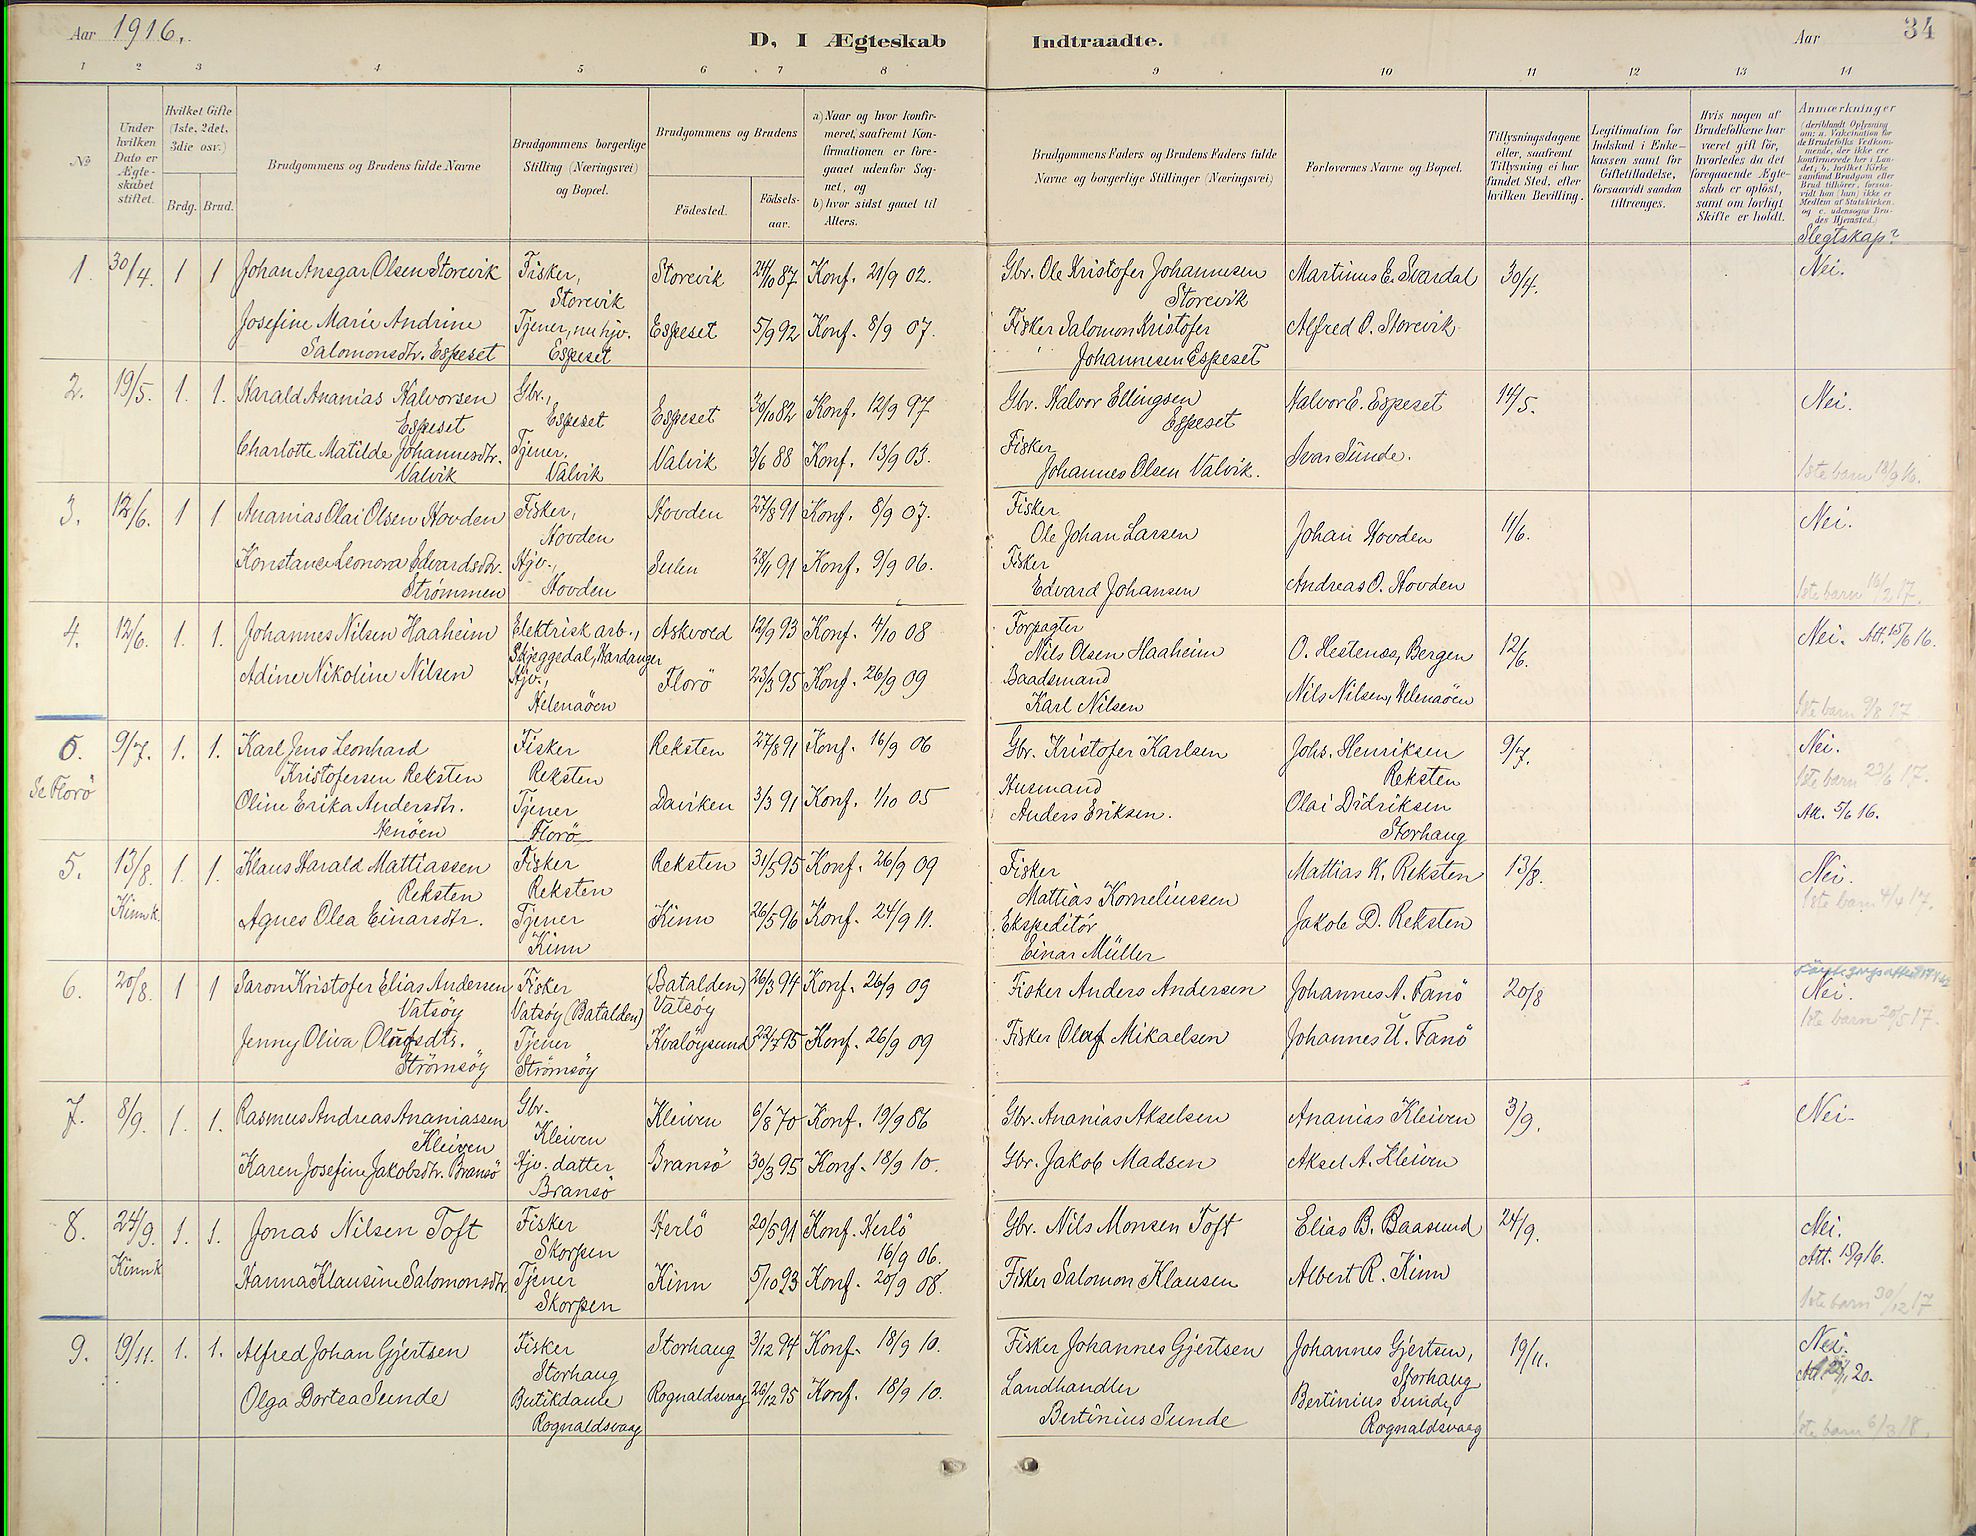 Aar 1916.
D, I Ægteskab Indtraadte.
Aar 34
1 2 3 4 5 6 7 8 9 10 11 12 13 14
No
Under hvilken Dato er Ægteskabet stiftet.
Hvilket Gifte (1ste, 2det, 3die osv.)
Brdg. Brud.
Brudgommens og Brudens fulde Navne
Brudgommens borgerlige Stilling (Næringsvei) og Bopæl.
Brudgommens og Brudens
Fødested.
Fødselsaar.
a) Naar og hvor konfirmeret, saafremt Konfirmationen er foregaaet udenfor Sognet, og
b) hvor sidst gaaet til Alters.
Brudgommens Faders og Brudens Faders fulde Navne og borgerlige Stillinger (Næringsvei)
Forlovernes Navne og Bopæl.
Tillysningsdagene eller, saafremt Tillysning ei har fundet Sted, efter hvilken Bevilling.
Legitimation for Indskud i Enkekassen samt for Giftetilladelse, forsaavidt saadan tiltrænges.
Hvis nogen af Brudefolkene har været gift før, hvorledes da det foregaaende Ægteskab er opløst, samt om lovligt Skifte er holdt.
Anmærkninger
(deriblandt Oplysning om: a. Vakcination for de Brudefolks Vedkommende, der ikke ere konfirmerede her i Landet; b. hvilket Kirkesamfund Brudgom eller Brud tilhører, forsaavidt han (hun) ikke er Medlem af Statskirken, og c. udensogns Brudes Hjemsted.)
Slegtskap?
1. 30/4. 1 1 Johan Ansgar Olsen Storevik Fisker, Storevik Storevik 24/10 87 Konf. 21/9 02. Gbr. Ole Kristofer Johannesen Storevik Martinus E. Svardal 30/4. Nei.
Josefine Marie Andrine Salomonsdtr. Espeset Tjener, nu hjv. Espeset Espeset 5/9 92 Konf. 8/9 07. Fisker Salomon Kristofer Johannesen Espeset Alfred O. Storevik
2. 19/5. 1. 1. Harald Ananias Halvorsen Espeset Gbr., Espeset Espeset 30/10 82 Konf. 12/9 97 Gbr. Halvor Ellingsen Espeset Halvor E. Espeset 14/5. Nei.
Charlotte Matilde Johannesdtr. Valvik Tjener. Valvik Valvik 3/6 88 Konf. 13/9 03. Fisker Johannes Olsen Valvik. Ivar Sunde. 1ste barn 18/9 16.
3. 12/6. 1 1 Ananias Olai Olsen Hovden Fisker, Hovden Hovden 27/8 91 Konf. 8/9 07. Fisker Ole Johan Larsen Johan Hovden 11/6. Nei.
Konstance Leonora Edvardsdtr. Strømmen Hjv., Hovden Sulen 28/11 91 Konf. 9/9 06. Fisker Edvard Johansen Andreas O. Hovden 1ste barn 16/2 17.
4. 12/6. 1. 1. Johannes Nilsen Haaheim Elektrisk arb., Skjeggedal, Hardanger Askvold 12/9 93 Konf. 4/10 08 Forpagter Nils Olsen Haaheim O. Hestenes, Bergen 12/6. Nei. Att. 15/6 16.
Adine Nikoline Nilsen Hjv., Helenaöen Florö 23/3 95 Konf. 26/9 09 Baadsmand Karl Nilsen Nils Nilsen, Helenaöen 1ste barn 9/8 17
6. Se Florö 9/7. 1. 1. Karl Jens Leonhard Kristofersen Reksten Fisker Reksten Reksten 27/8 91 Konf. 16/9 06 Gbr. Kristofer Karlsen Johs. Henriksen Reksten 9/7. Nei.
1ste barn 23/6 17.
Oline Erika Andersdtr. Nenöen Tjener Florö Daviken 3/3 91 Konf. 1/10 05 Husmand Anders Eriksen. Olai Didriksen Storhaug Att. 5/6 16.
5. 13/8. Kinn k. 1. 1. Klaus Harald Mattiassen Reksten Fisker Reksten Reksten 31/5 95 Konf. 26/9 09 Fisker Mattias Korneliussen Mattias K. Reksten 13/8. Nei.
1ste barn 4/4 17.
Agnes Olea Einarsdtr. Tjener Kinn Kinn 26/5 96 Konf. 24/9 11. Ekspeditör Einar Müller Jakob D. Reksten
6. 20/8. 1 1 Saron Kristofer Elias Andersen Vatsöy Fisker Vatsöy (Batalden) (Batalden) Vatsöy 26/3 94 Konf. 26/9 09 Fisker Anders Andersen Johannes A. Fanö 20/8 Nei.
1ste barn 20/5 17.
Jenny Oliva Olufsdtr. Strömsöy Tjener Strömsöy Kvalöysund 22/7 95 Konf. 26/9 09 Fisker Oluf Mikaelsen Johannes U. Fanö
7. 8/9. 1. 1. Rasmus Andreas Ananiassen Kleiven Gbr. Kleiven Kleiven 6/8 70 Konf. 19/9 86 Gbr. Ananias Akselsen Ananias Kleiven 3/9. Nei
Karen Josefine Jakobsdtr. Bransö Hjv. datter Bransö Bransö 30/3 95 Konf. 18/9 10. Gbr. Jakob Madsen Aksel A. Kleiven
8. 24/9. Kinn k 1. 1. Jonas Nilsen Toft Fisker Skorpen Herlö 20/5 91 Konf. Herlö 16/9 06. Gbr. Nils Monsen Toft Elias B. Baasund 24/9. Nei.
Att. 15/9 16.
Hanna Klausine Salomonsdtr. Tjener Skorpen Kinn 5/10 93 Konf. 20/9 08. Fisker Salomon Klausen Albert R. Kinn 1ste barn 30/12 17
9. 19/11. 1. 1. Alfred Johan Gjertsen Fisker Storhaug Storhaug 3/12 94 Konf. 18/9 10. Fisker Johannes Gjertsen Johannes Gjertsen, Storhaug 19/11. Nei.
Olga Dortea Sunde Butikdame Rognaldsvaag Rognaldsvaag 26/12 95 Konf. 18/9 10. Landhandler Bertinius Sunde Bertinius Sunde, Rognaldsvaag 1ste barn 6/3 18.